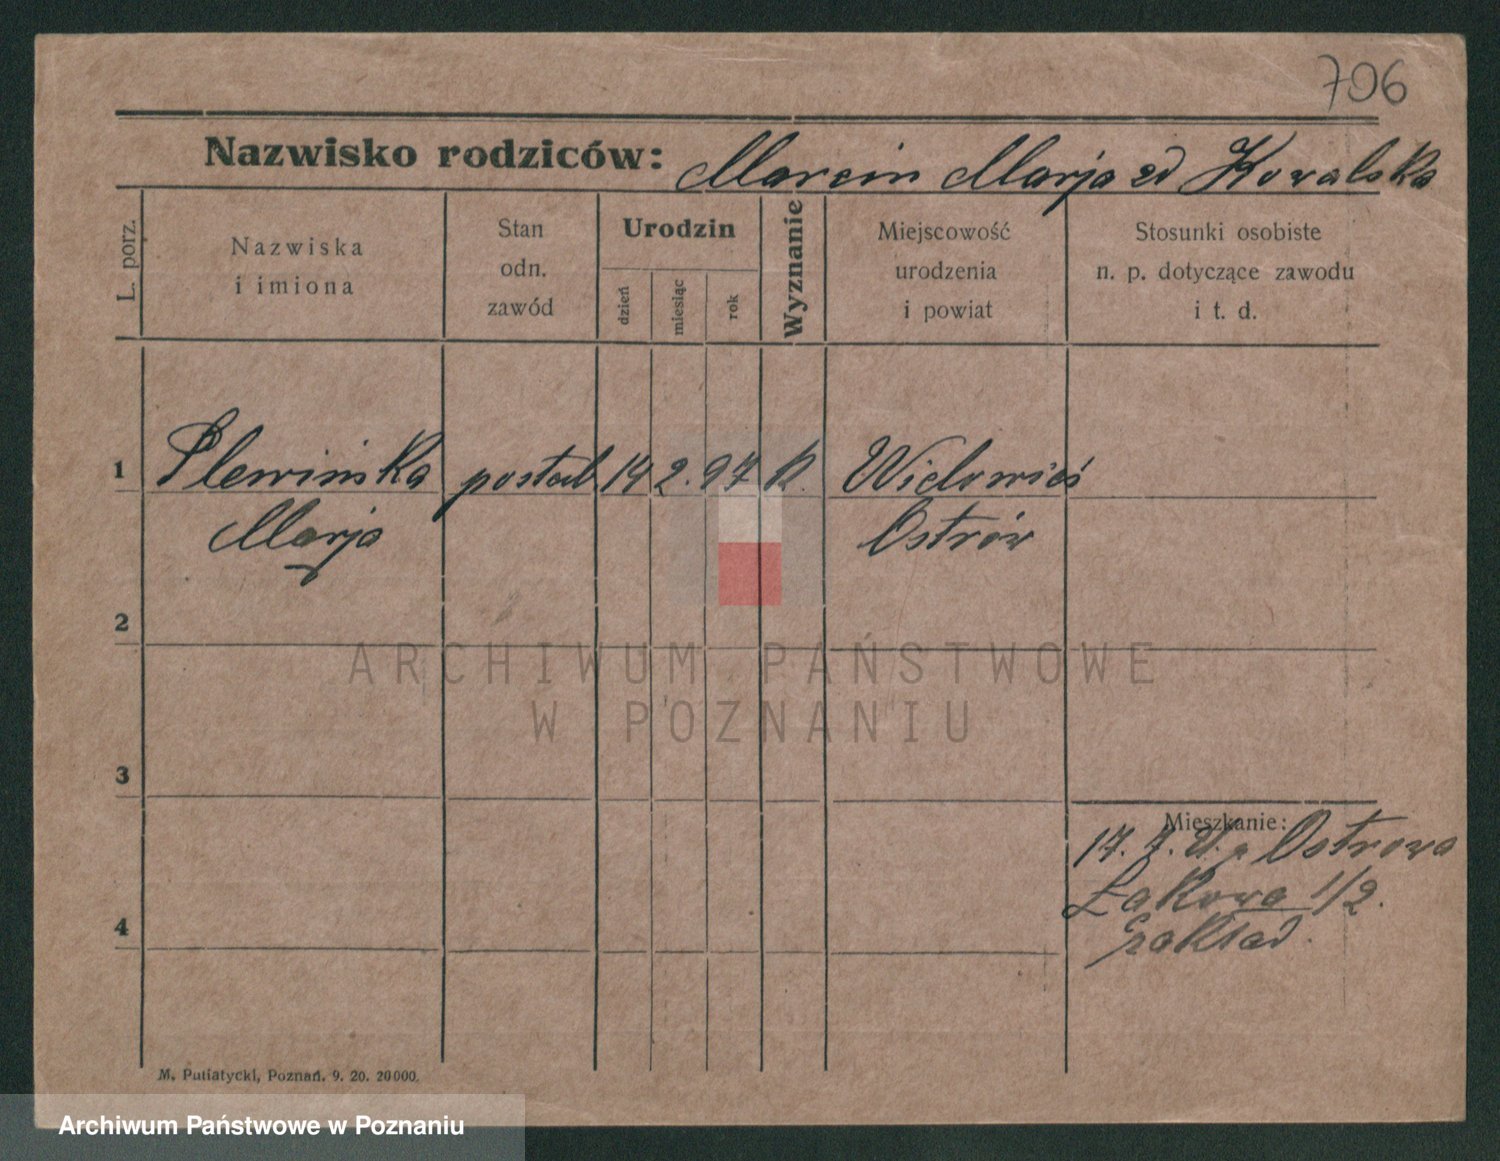 706
Nazwisko rodziców: Marcin Marja zd Kowalska
L. porz.
Nazwiska
i imiona
Stan
odn.
zawód
Urodzin
dzień
miesiąc
rok
Wyznanie
Miejscowość
urodzenia
i powiat
Stosunki osobiste
n. p. dotyczące zawodu
i t. d.
1 Plewińska 14 2. 97 k. Widowicś
Marja Ostrów
2
ARCHIWUM PAŃSTWOWE
W POZNANIU
3
Mieszkanie:
17. Ostrowa
Łąkowa 1/2.
Zakład.
4
M. Putiatycki, Poznań. 9. 20. 20000.
Archiwum Państwowe w Poznaniu